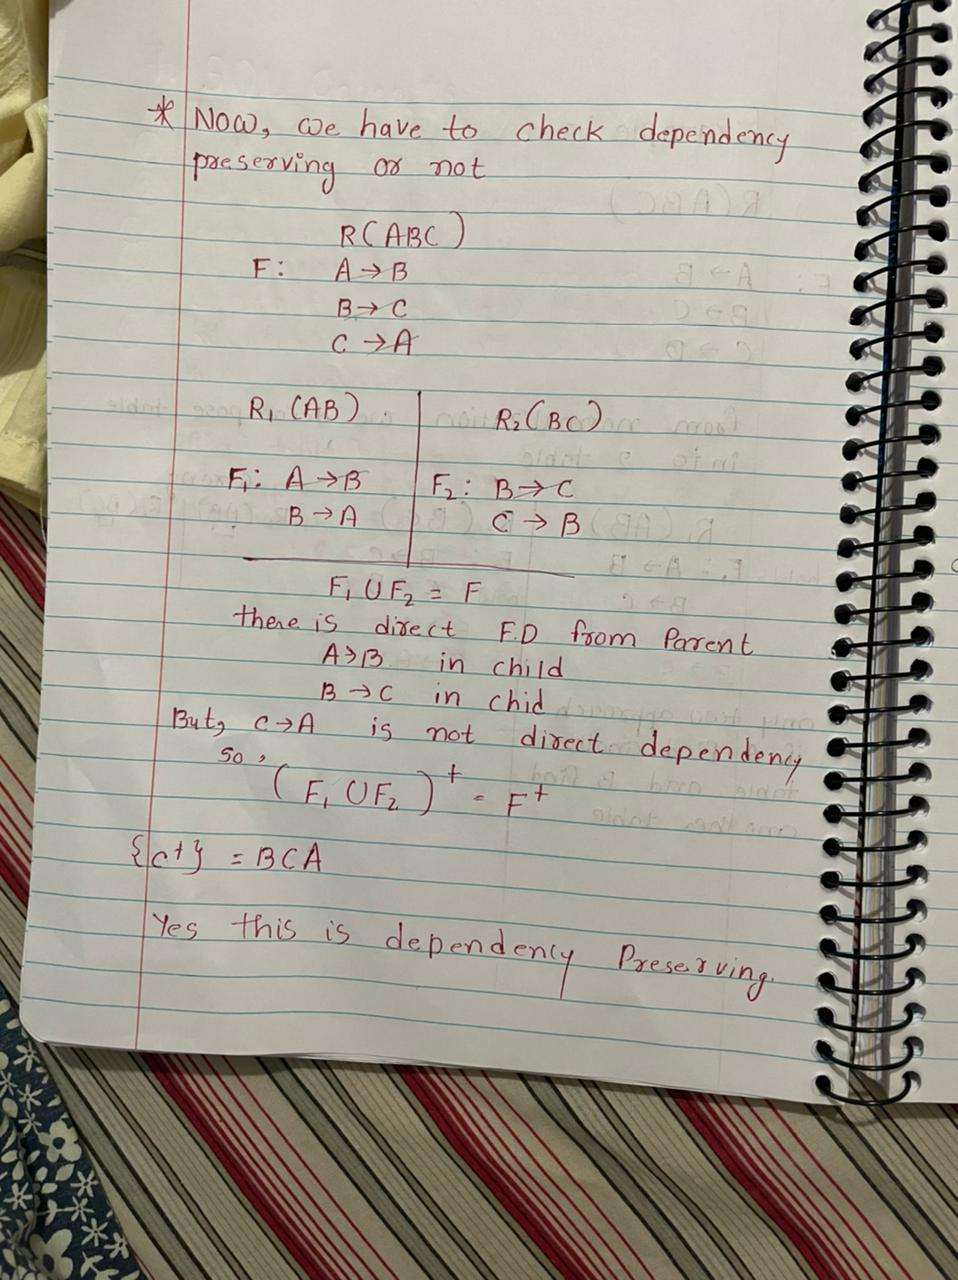 * Now, we have to check dependency
preserving or not
R(ABC)
F: A→B
B→C
C→A
R₁(AB)
R₂(BC)
F₁: A→B
B→A
F₂: B→C
C→B
F₁ ∪ F₂ = F
there is direct F.D from Parent
A→B in child
B→C in chid
But, C→A is not direct dependency
so,
(F₁ ∪ F₂)⁺ = F⁺
{c+} = BCA
Yes this is dependency Preserving.